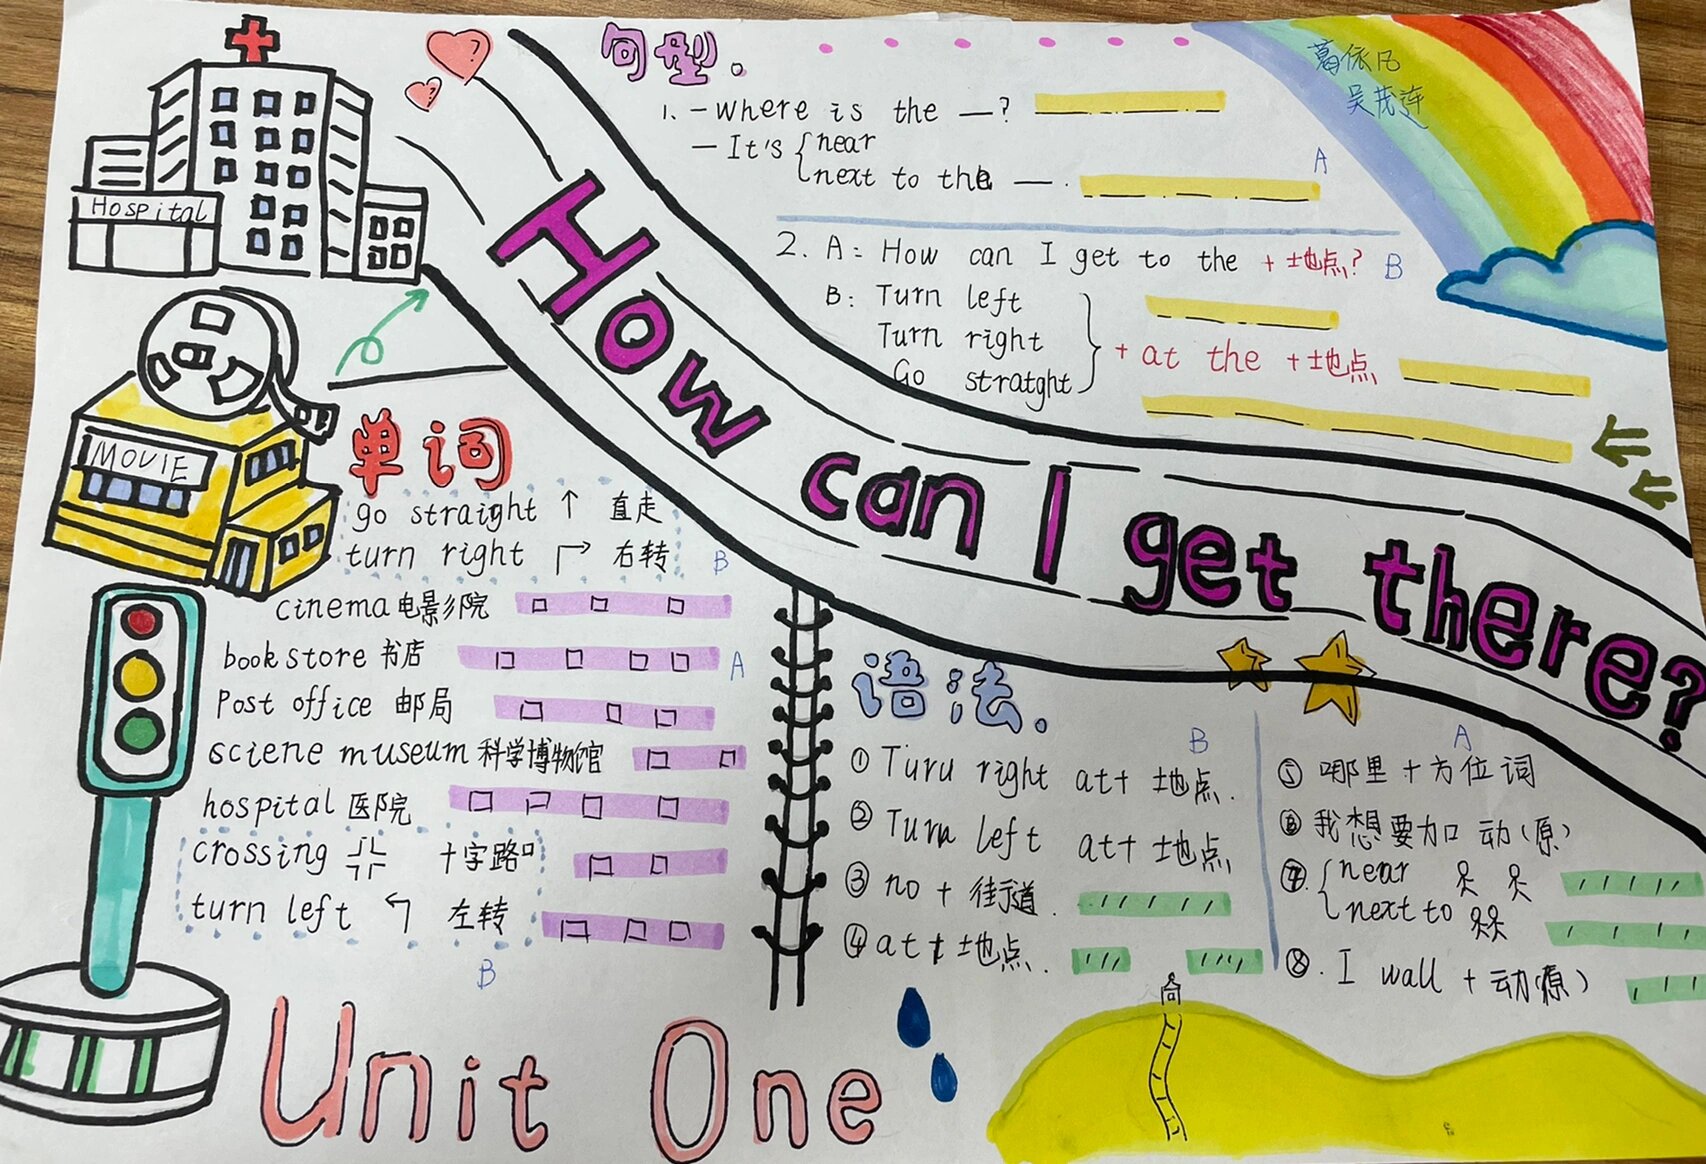 句型。
葛依凡
1. - where is the — ?
- It's { near
next to the — .
A
2. A: How can I get to the + 地点? B
B: Turn left
Turn right
Go stratght
+ at the + 地点
Hospital
MOVIE
How can I get there?
单词
go straight ↑ 直走
turn right 右转
B
cinema 电影院
book store 书店 A
Post office 邮局
sciene museum 科学博物馆
hospital 医院
crossing 十字路口
turn left 左转
B
语法。
B
① Turu right at+ 地点.
② Turn left at+ 地点
③ no + 街道.
④ at+ 地点.
A
⑤ 哪里+方位词
⑥ 我想要加 动(原)
⑦. { near
next to
⑧. I wall + 动(原)
Unit One